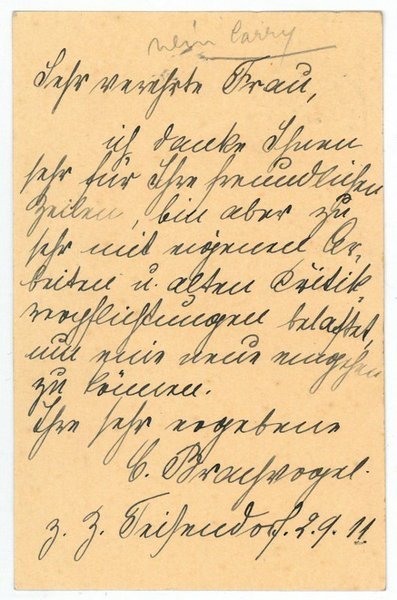 Sehr verehrte Frau,
ich danke Ihnen
sehr für Ihre freundlichen
Zeilen, bin aber zu
sehr mit eigenen Ar-
beiten u. alten Kritik-
verpflichtungen belastet,
um eine neue eingehen
zu können.
Ihre sehr ergebene
C. Brachvogel.
z. Z. Teisendorf. 2.9.11